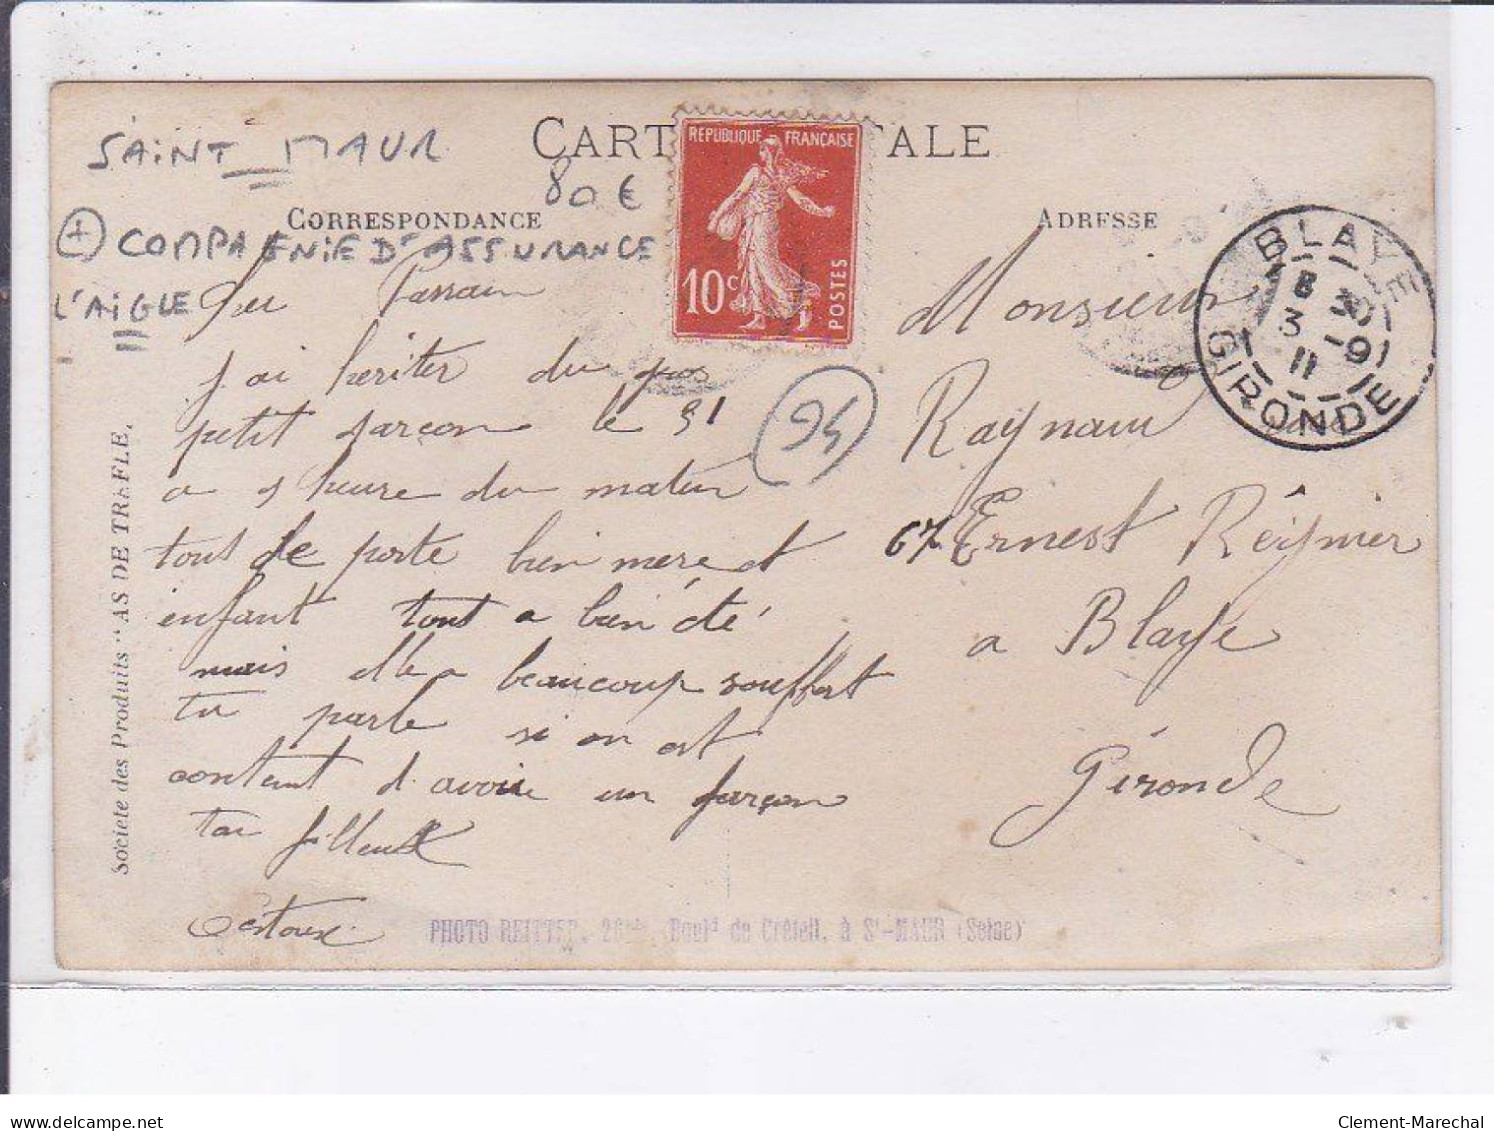 SAINT MAUR
80€
+ COMPAGNIE D'ASSURANCE
L'AIGLE
94
CARTE POSTALE
CORRESPONDANCE
ADRESSE
REPUBLIQUE FRANÇAISE
10c
POSTES
BLAYE
8 30
3 -9
11
GIRONDE
Parrain
j ai heriter du gros
petit garçon le 31
a 9 heure du matin
tous de porte bien mere et
enfant tout a bien été
mais elle a beaucoup souffert
tu parle si on est
content d avoir un garçon
ton filleul
Monsieur
Raynaud
67 Ernest Régnier
a Blaye
Gironde
Societe des Produits "AS DE TREFLE.
PHOTO REITTER, 26bis, Bould de Créteil, à St-MAUR (Seine)
Clement-Marechal
www.delcampe.net